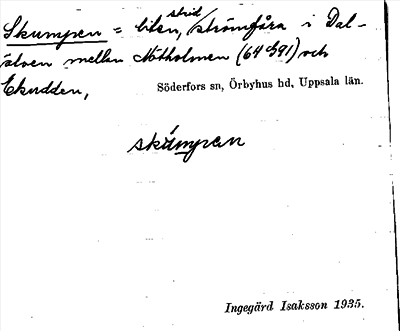 Skumpen = liten, strid strömfåra i Dal-
älven mellan Nötholmen (64 491) och
Ekudden,
Söderfors sn, Örbyhus hd, Uppsala län.
skúmpen
Ingegärd Isaksson 1935.